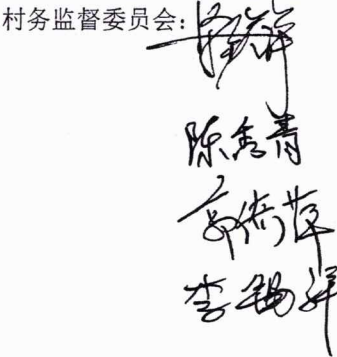 村务监督委员会:
陈秀青
郭倚萍
李锡祥